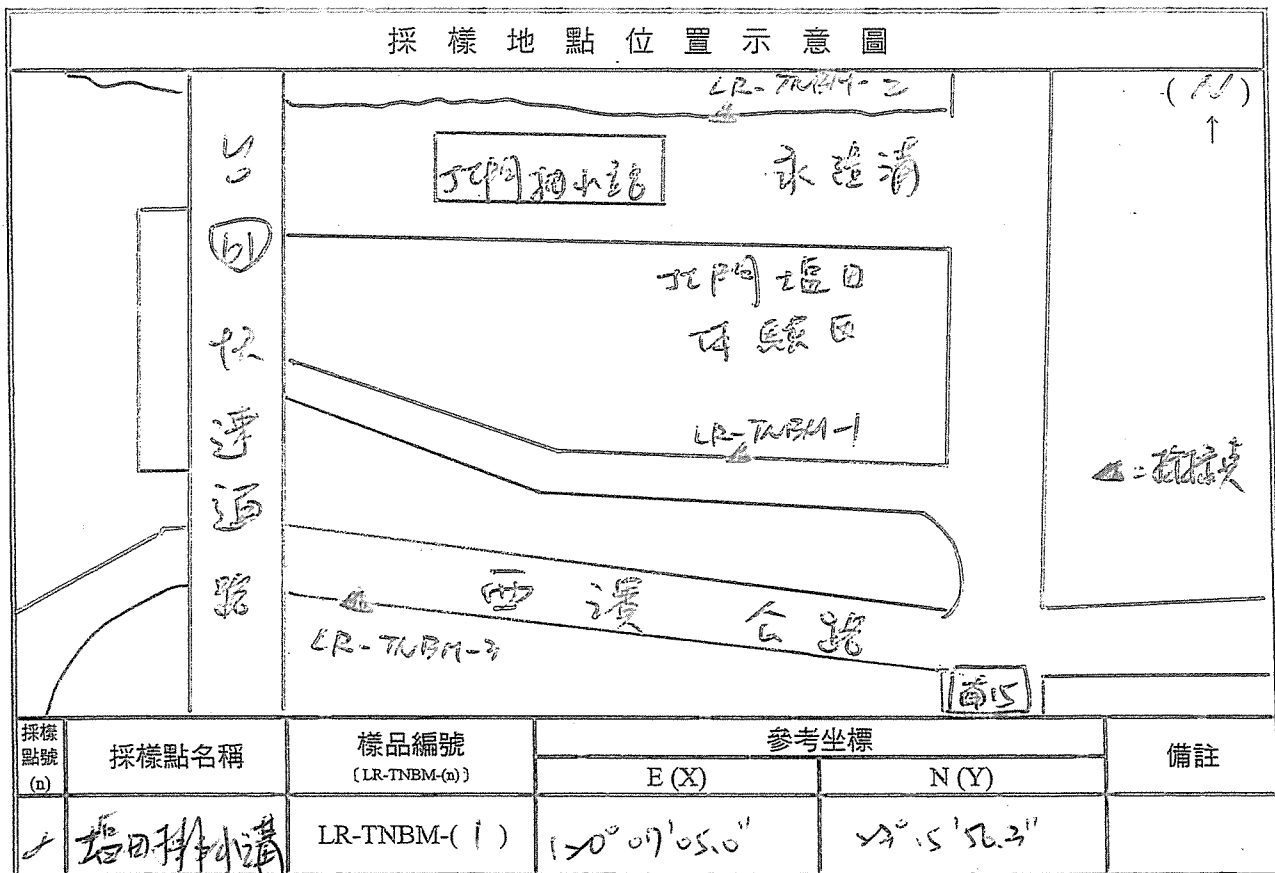 採樣地點位置示意圖
LR-TNBM-2
(N)
↑
台61快速道路
北門抽水站
永隆溝
北門塩田
体驗区
LR-TNBM-1
▲:採樣点
雲濱公路
LR-TNBM-3
南15
採樣點號(n) 採樣點名稱 樣品編號 參考坐標 備註
〔LR-TNBM-(n)〕 E (X) N (Y)
塩田排水溝 LR-TNBM-(1) 120° 07' 05.0" 23° 15' 56.3"